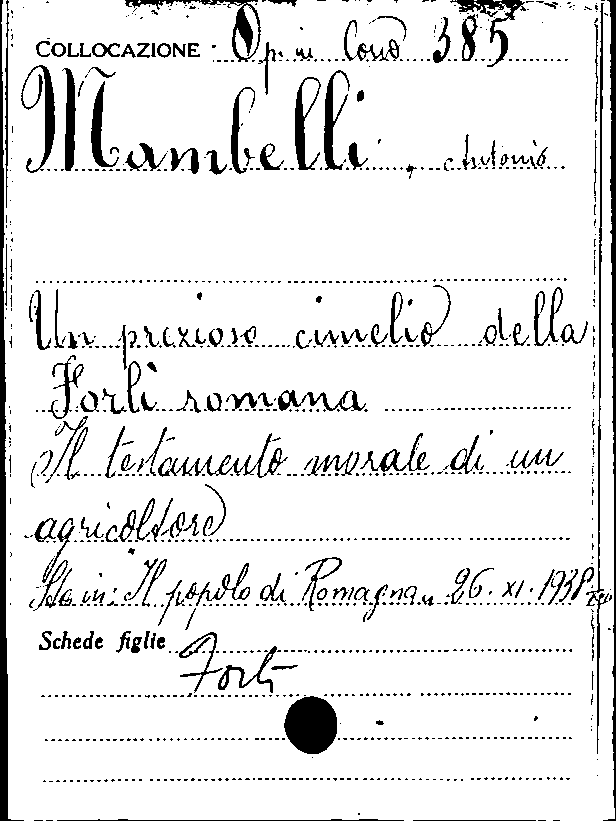 COLLOCAZIONE Op. in Cons 385
Mambelli, Antonio
Un prezioso cimelio della
Forlì romana
Il testamento morale di un
agricoltore
Sta in: Il popolo di Romagna, 26. XI. 1938
Schede figlie
Forlì